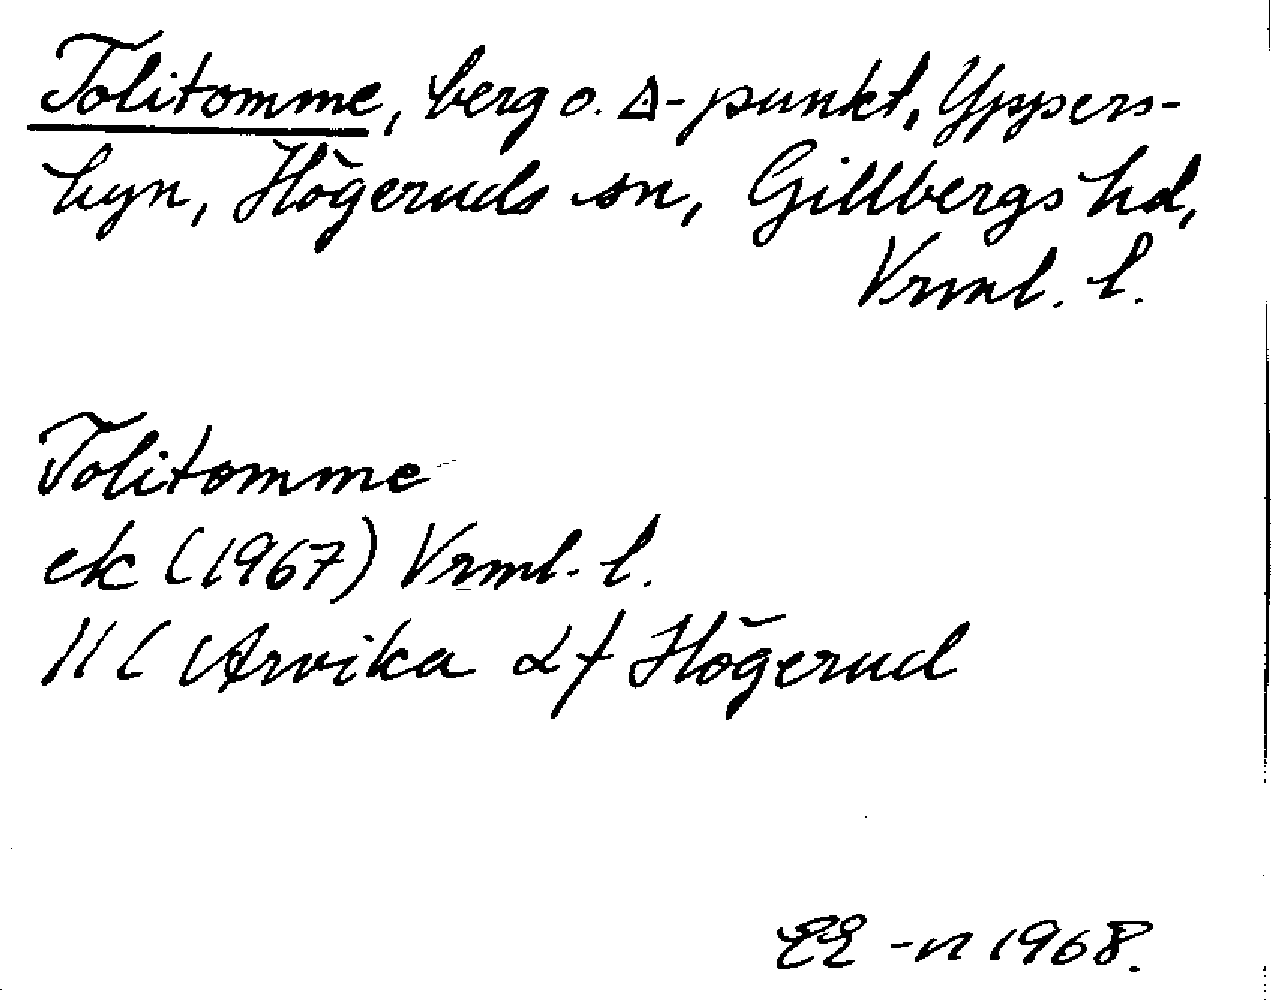 Tolitomme, berg o. Δ-punkt, Yppers-
byn, Högeruds sn, Gillbergs hd,
Vrml. l.
Tolitomme
ek (1967) Vrml. l.
11 C Arvika df Högerud
EE -n 1968.